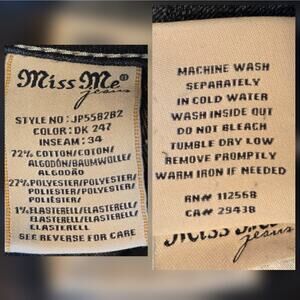 Miss Me®
jeans
STYLE NO: JP5582B2
COLOR: DK 247
INSEAM: 34
72% COTTON/COTON/
ALGODÓN/BAUMWOLLE/
ALGODÃO
27% POLYESTER/POLYESTER/
POLIÉSTER/POLYESTER/
POLIÉSTER/
1% ELASTERELL/ELASTERELL
ELASTERELL/ELASTERELL/
ELASTERELL
SEE REVERSE FOR CARE
MACHINE WASH
SEPARATELY
IN COLD WATER
WASH INSIDE OUT
DO NOT BLEACH
TUMBLE DRY LOW
REMOVE PROMPTLY
WARM IRON IF NEEDED
RN# 112568
CA# 29438
Miss Me
jeans